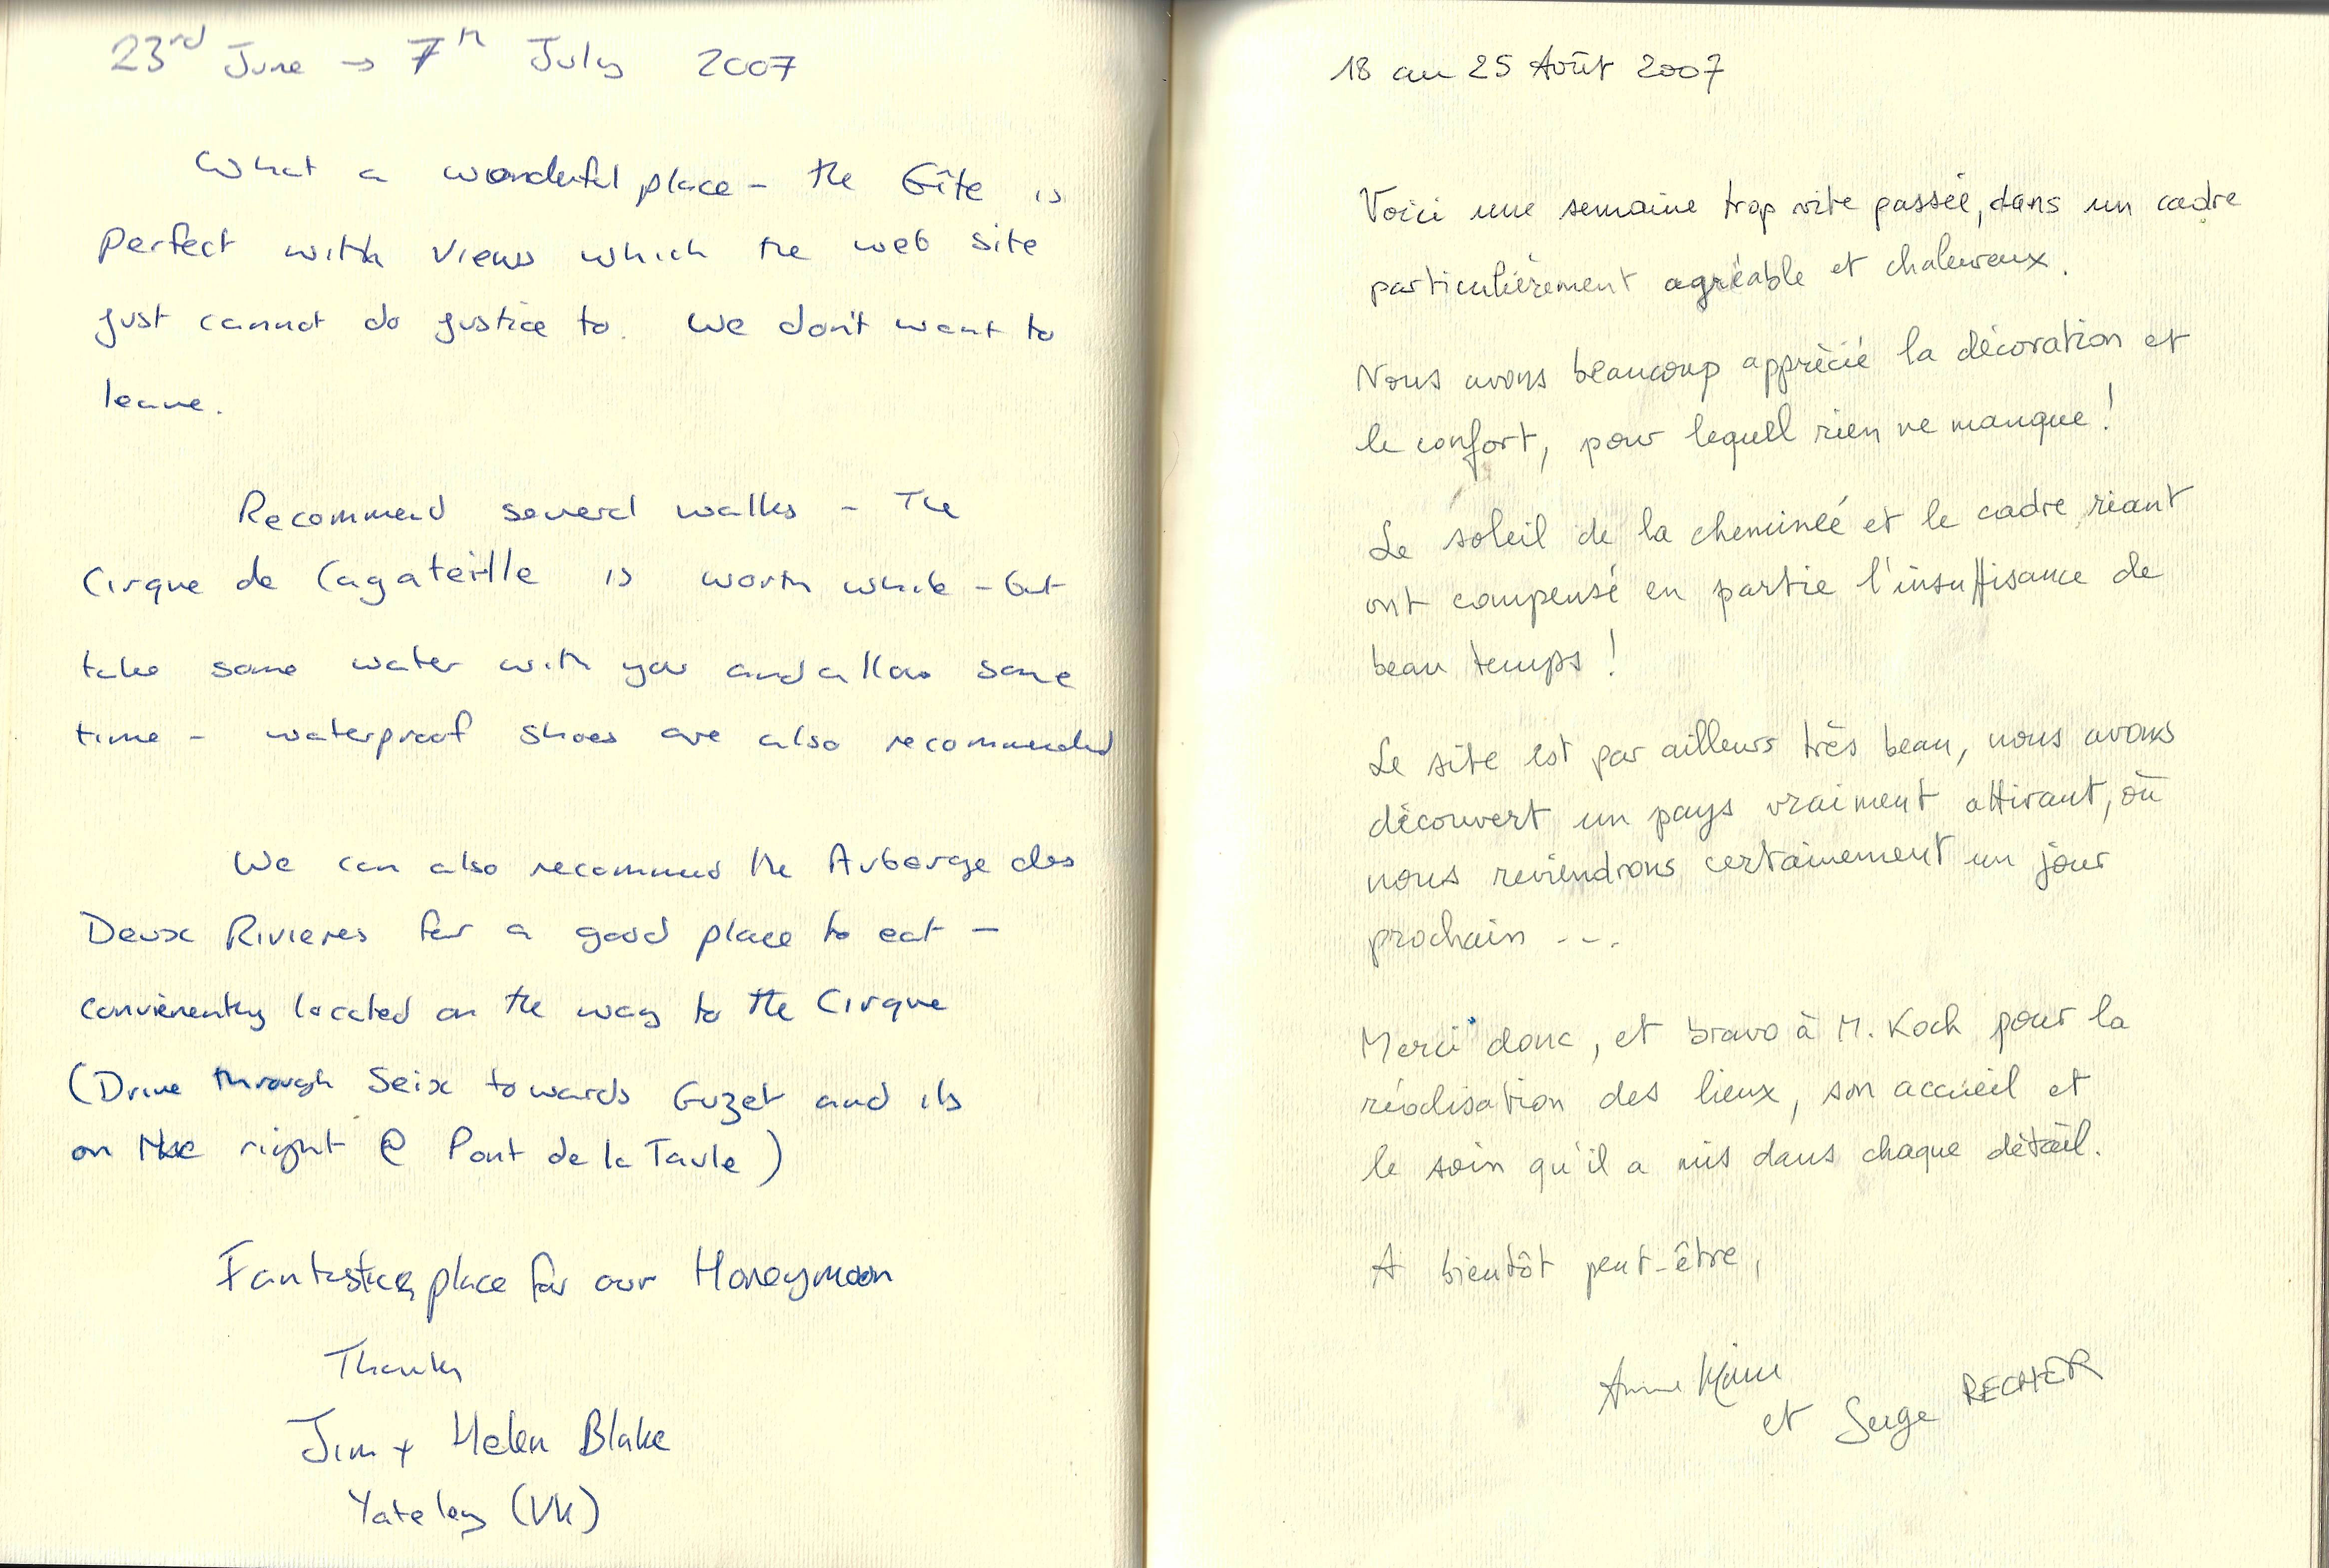 23rd June → 7th July 2007
What a wonderful place - the Gîte is
perfect with views which the web site
just cannot do justice to. We don't want to
leave.
Recommend several walks - The
Cirque de Cagateille is worth while - but
take some water with you and allow some
time - waterproof shoes are also recommended
We can also recommend the Auberge des
Deux Rivieres for a good place to eat -
conveniently located on the way to the Cirque
(Drive through Seix towards Guzet and its
on the right @ Pont de la Taule)
Fantastic place for our Honeymoon
Thanks
Jim + Helen Blake
Yateley (UK)
18 au 25 Août 2007
Voici une semaine trop vite passée, dans un cadre
particulièrement agréable et chaleureux.
Nous avons beaucoup apprécié la décoration et
le confort, pour lequel rien ne manque !
Le soleil de la cheminée et le cadre riant
ont compensé en partie l'insuffisance de
beau temps !
Le site est par ailleurs très beau, nous avons
découvert un pays vraiment attirant, où
nous reviendrons certainement un jour
prochain ---.
Merci donc, et bravo à M. Koch pour la
réalisation des lieux, son accueil et
le soin qu'il a mis dans chaque détail.
A bientôt peut-être,
Anne
et Serge RECHER